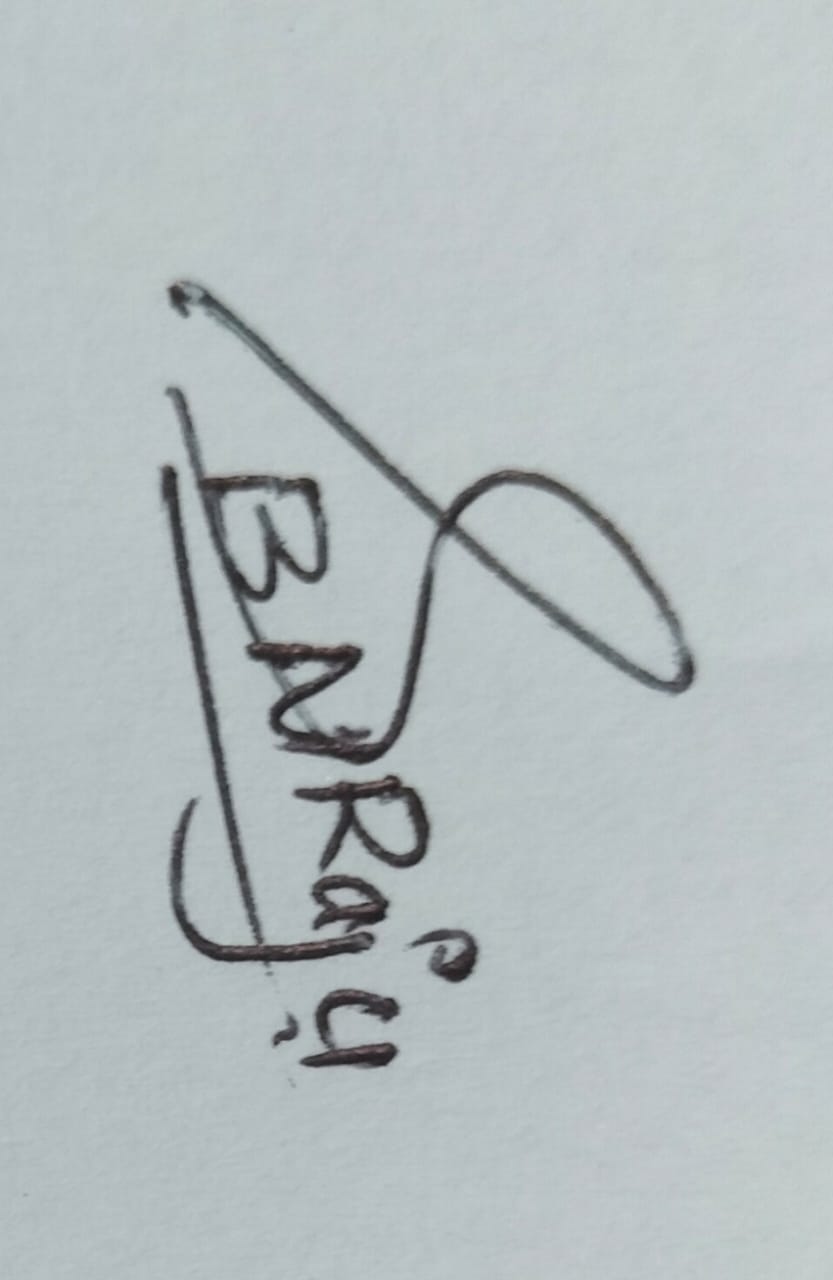 B N Raju